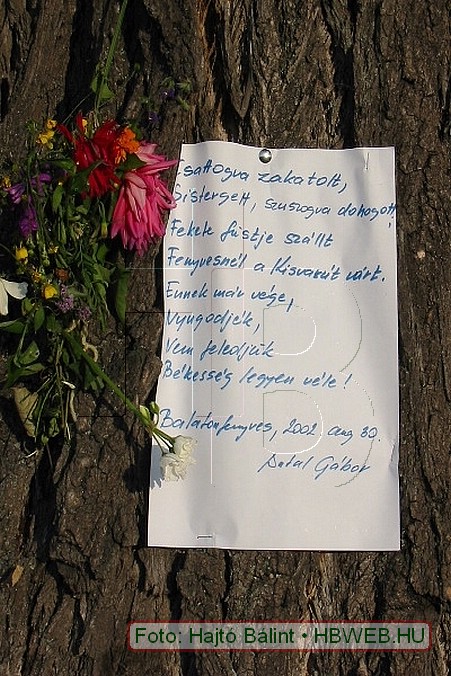 Csattogva zakatolt,
Sistergett, szuszogva dohogott,
Fekete füstje szállt
Fenyvesnél a Kisvasút várt.
Ennek már vége,
Nyugodjék,
Nem feledjük
Békesség legyen véle!
Balatonfenyves, 2002 aug 30.
Antal Gábor
HB
Foto: Hajtó Bálint • HBWEB.HU